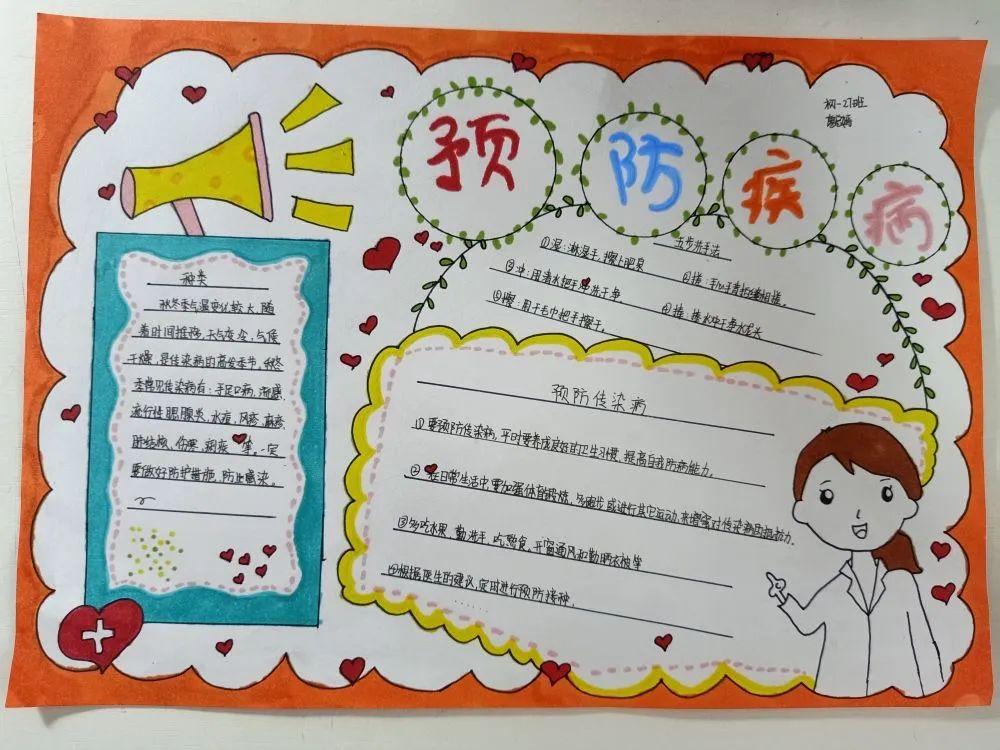 预防疾病
初一27班
五步洗手法
①湿：淋湿手，擦上肥皂
②搓：手心手背指缝相搓。
③冲：用清水把手冲洗干净
④捧：捧水冲干净水龙头
⑤擦：用干毛巾把手擦干。
种类
秋冬季气温变化较大，随
着时间推移，天气变冷，气候
干燥，是传染病的高发季节，秋冬
季常见传染病有：手足口病，流感，
流行性腮腺炎，水痘，风疹，麻疹
肺结核，伤寒，等。一定
要做好防护措施，防止感染。
预防传染病
①要预防传染病，平时要养成良好的卫生习惯，提高自我防病能力。
②在日常生活中，要加强体育锻炼，多跑步或进行其它运动，来增强对传染病的抵抗力。
③多吃水果，勤洗手，吃熟食，开窗通风和勤晒衣被等
④根据医生的建议，定时进行预防接种。